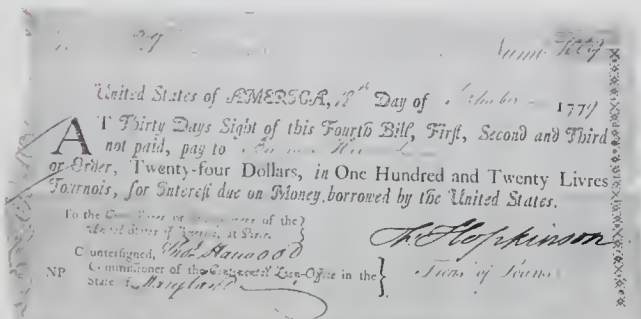 United States of AMERICA, Day of 1779
AT Thirty Days Sight of this Fourth Bill, First, Second and Third
not paid, pay to
or Order, Twenty-four Dollars, in One Hundred and Twenty Livres
Tournois, for Interest due on Money borrowed by the United States.
To the of the
United States of at Paris.
Countersigned, Harwood
Commissioner of the Continental Loan-Office in the
NP State of Maryland
Hopkinson
Treas of Loans